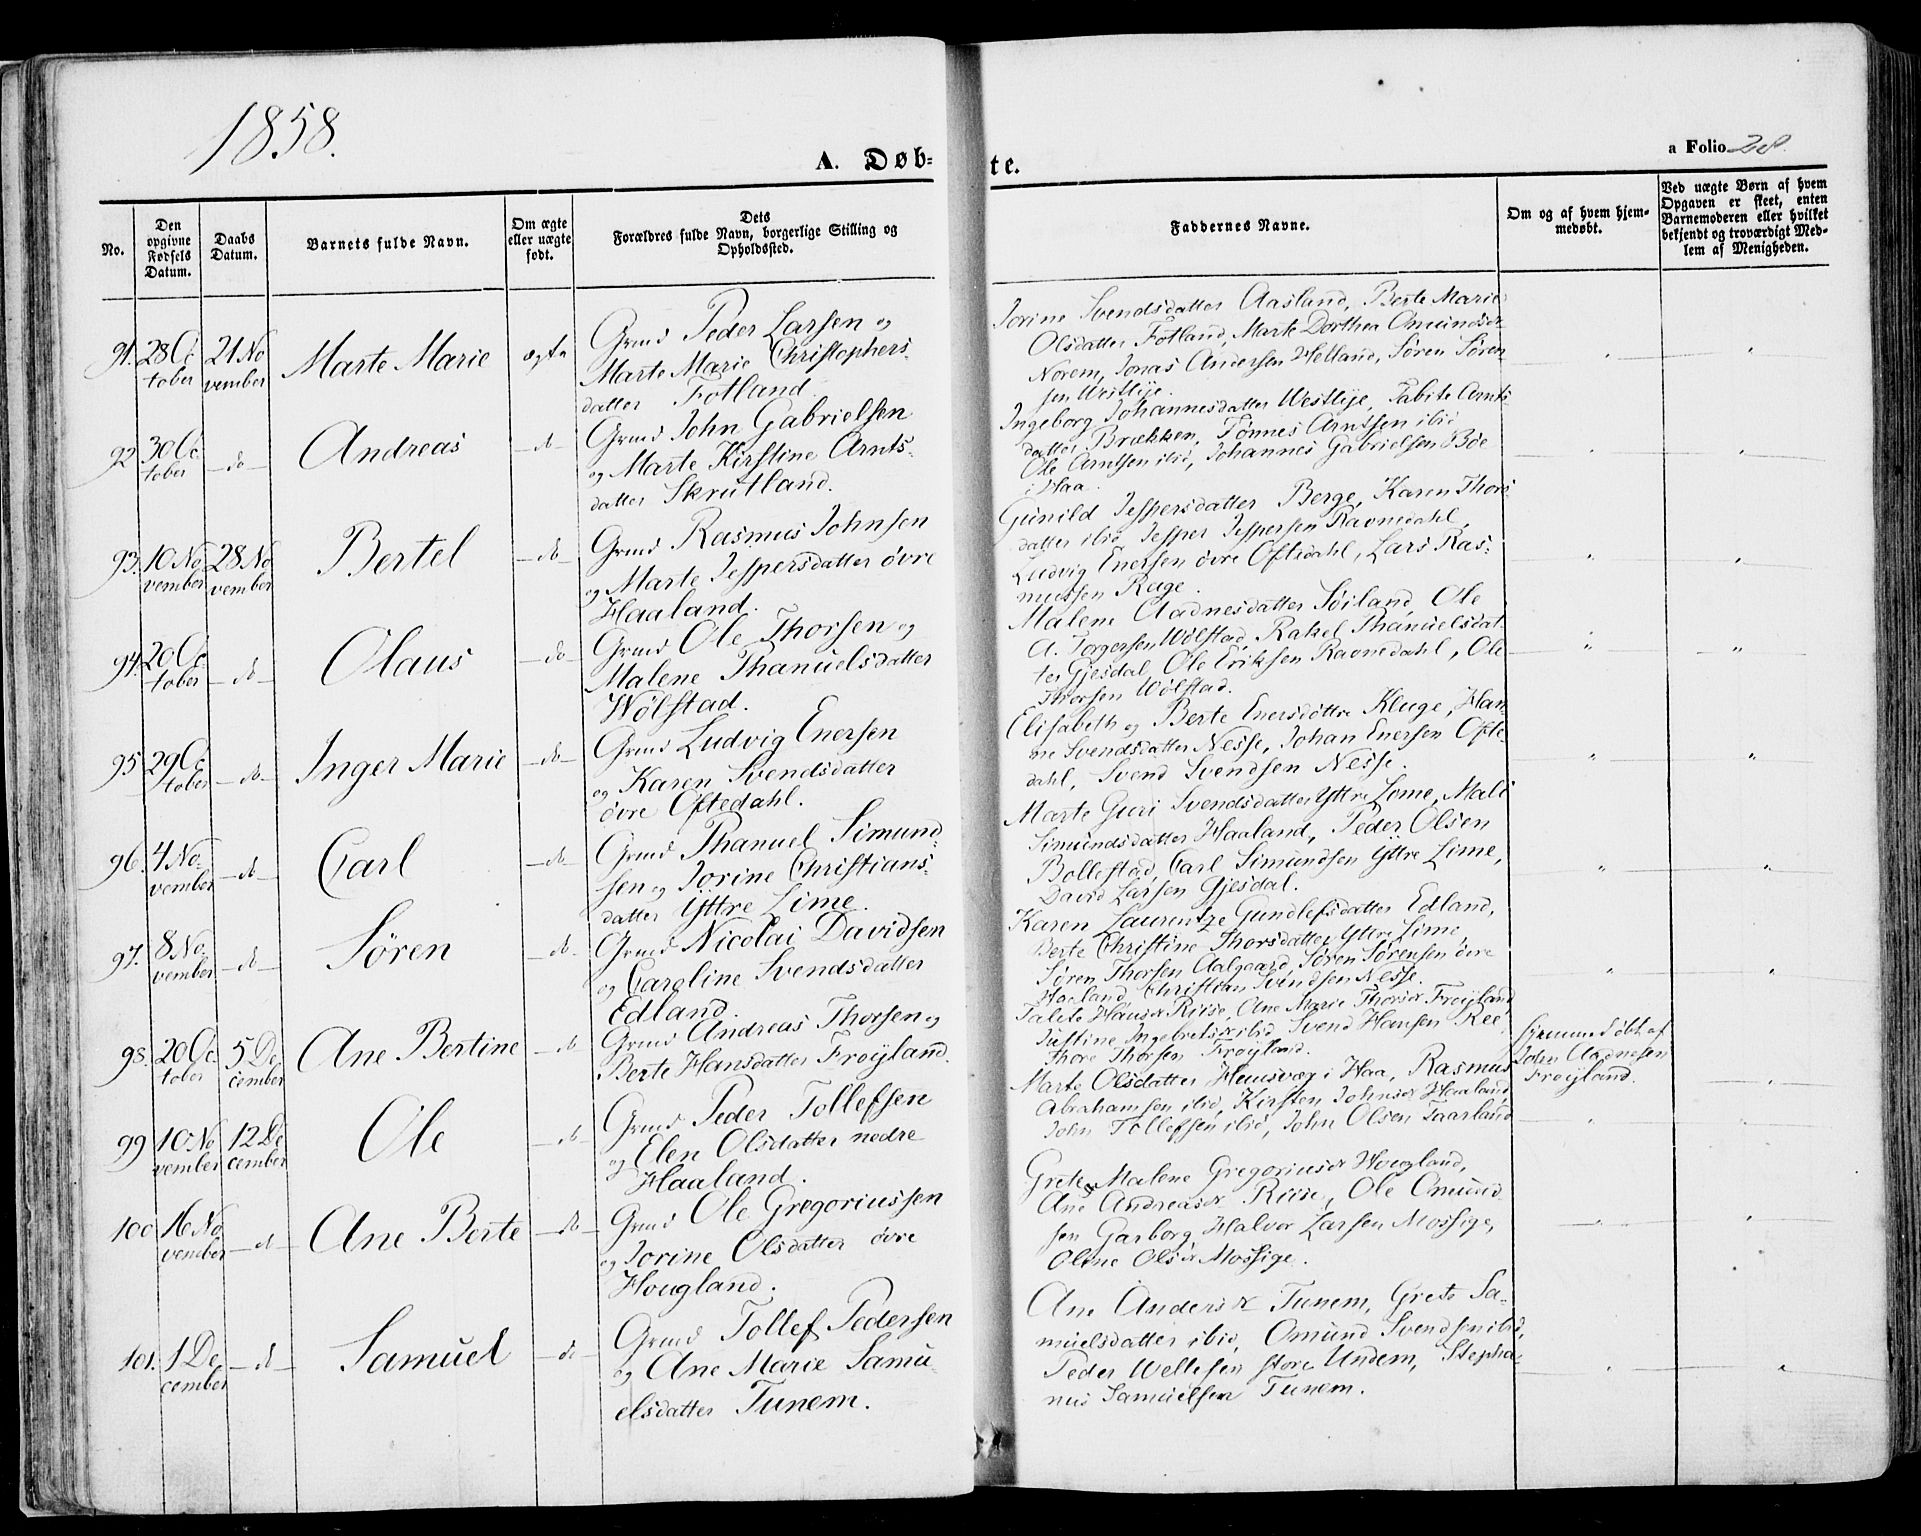 1858.
A. Døb=
te.
a Folio 28.
No.
Den opgivne Fødsels Datum.
Daabs Datum.
Barnets fulde Navn.
Om ægte eller uægte født.
Dets Forældres fulde Navn, borgerlige Stilling og Opholdssted.
Faddernes Navne.
Om og af hvem hjem-
medøbt.
Ved uægte Børn af hvem
Opgaven er skeet, enten
Barnemoderen eller hvilket
bekjendt og troværdigt Med-
lem af Menigheden.
91. 28 Oc
tober
21 No
vember
Marte Marie
ægte
Grmd Peder Larsen og
Marte Marie Christophers-
datter Fotland.
Jorine Svendsdatter Aasland, Berte Marie
Olsdatter Fotland, Marte Dorthea Omundsdr
Norem, Jonas Andersen Helland, Søren Søren-
sen Westlye.
92 30 Oc
tober
do
Andreas
do
Grmd John Gabrielsen
og Marte Kirstine Arnts-
datter Skrutland.
Ingeborg Johannesdatter Westlye, Tabite Arnts
datter Brækken, Tønnes Arntsen ibid
Ole Arntsen ibid, Johannes Gabrielsen Bøe
i Haa.
93. 10 No
vember
28 No
vember
Bertel
do
Grmd Rasmus Johnsen
og Marte Jespersdatter øvre
Haaland.
Gunild Jespersdatter Berge, Karen Thors
datter ibid Jesper Jespersen Ravnedahl,
Ludvig Enersen øvre Oftedahl, Lars Ras-
mussen Rage.
94. 20 Oc
tober
do
Olaus
do
Grmd Ole Thorsen og
Malene Thanuelsdatter
Wølstad.
Malene Aadnesdatter Søiland, Ole
A. Torgersen Wølstad, Rakel Thanuelsdat
ter Gjesdal, Ole Eriksen Ravnedahl, Ole
Thorsen Wølstad.
95 29 Oc
tober
do
Inger Marie
do
Grmd Ludvig Enersen
og Karen Svendsdatter
øvre Oftedahl.
Elisabeth og Berte Enersdøttre Kluge, Han
ne Svendsdatter Nesse, Johan Enersen Ofte-
dahl, Svend Svendsen Nesse.
96. 4 No-
vember
do
Carl
do
Grmd Thanuel Simund-
sen og Jorine Christians-
datter Yttre Lime.
Marte Guri Svendsdatter Yttre Lime, Mali
Simundsdatter Haaland, Peder Olsen
Bollestad, Carl Simundsen Yttre Lime,
David Larsen Gjesdal.
97. 8 No
vember
do
Søren
do
Grmd Nicolai Davidsen
og Caroline Svendsdatter
Edland.
Karen Laurentze Gundlefsdatter Edland,
Berte Christine Thorsdatter Yttre Lime
Søren Thorsen Aalgaard, Søren Sørensen øvre
Haaland, Christian Svendsen Nesse.
98. 20 Oc
tober
5 De
cember
Ane Bertine
do
Grmd Andreas Thorsen og
Berte Hansdatter Frøyland.
Talite Hansdr Riise, Ane Marie Thorsdr Frøyland
Justine Ingebretsdr ibid, Svend Hansen Ree
Thore Thorsen Frøyland.
Hjemmedøbt af
John Aadnesen
Frøyland.
99 10 No
vember
12 De
cember
Ole
do
Grmd Peder Tollefsen
og Elen Olsdatter nedre
Haaland.
Marte Olsdatter Hæusvæg i Haa, Rasmus
Abrahamsen ibid, Kirsten Johnsdr Haaland,
John Tollefsen ibid, John Olsen Taarland
100 16 No
vember
do
Ane Berte
do
Grmd Ole Gregoriussen
og Jorine Olsdatter øvre
Hougland.
Grete Malene Gregoriusdr Hougland,
Ane Andreasdr Riise, Ole Omund
sen Garborg, Halvor Larsen Mossige,
Oline Olsdr Mossige.
101. 1 De
cember
do
Samuel
do
Grmd Tollef Pedersen
og Ane Marie Samu-
elsdatter Tunem.
Ane Andersdr Tunem, Grete Sa-
muelsdatter ibid, Omund Svendsen ibid,
Peder Wellesen store Undem, Stepha-
nus Samuelsen Tunem.